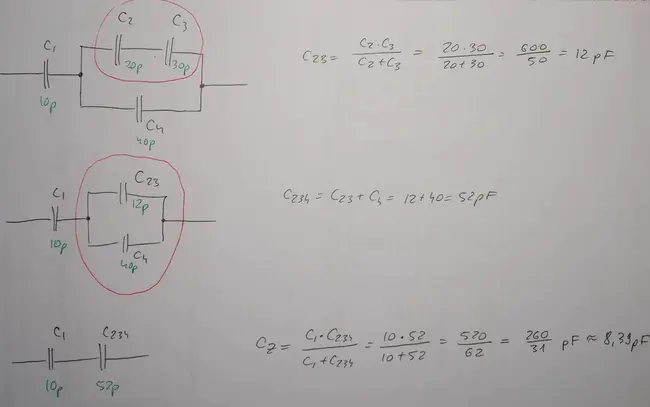 C2 C3
C1 20p 30p
10p
C4
40p
C23 = C2·C3 / C2+C3 = 20·30 / 20+30 = 600 / 50 = 12 pF
C23
C1 12p
10p C4
40p
C234 = C23 + C4 = 12+40 = 52pF
C1 C234
10p 52p
CZ = C1·C234 / C1+C234 = 10·52 / 10+52 = 520 / 62 = 260 / 31 pF ≈ 8,39pF